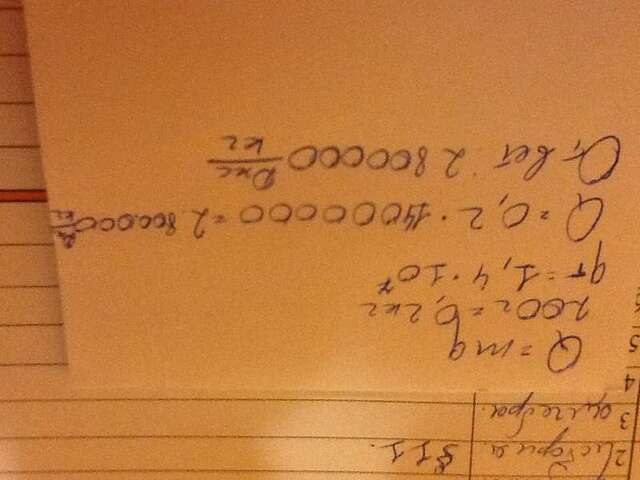 2 история. §11.
3 алгебра.
4
5
6
Q = mq
200г = 0,2 кг
qт = 1,4 · 10⁷
Q = 0,2 · 14000000 = 2 800.000 Дж/кг
Ответ: 2 800000 Дж/кг